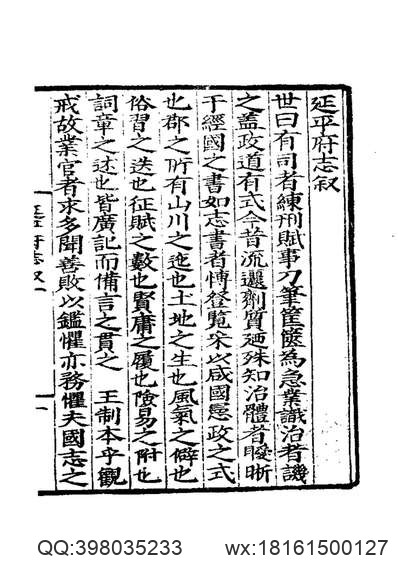 延平府志叙
世曰有司者練刑賦事刀筆筐篋為急業識治者譏
之盖政道有式今昔流遷劑質廼殊知治體者曖晰
于經國之書如志書者慱登覧采以咸國慝政之式
也郡之所有山川之迤也土地之生也風氣之僻也
俗習之迭也征賦之數也賢庸之履也險易之附也
詞章之述也皆廣記而備言之貫之 王制本乎觀
戒故業官者求多聞善敗以鑑懼亦務懼夫國志之
延平府志叙 一
QQ:398035233 wx:18161500127